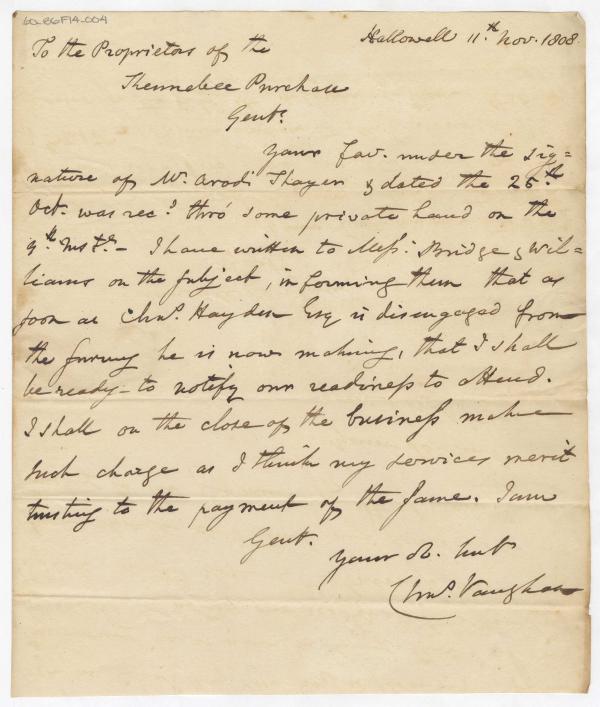 60-86F14.004
Hallowell 11.th Nov. 1808.
To the Proprietors of the
Kennebec Purchase
Gent.s
Your fav. under the sig=
nature of Mr. Arodi Thayer & dated the 25th
Oct. was rec.d thro' some private hand on the
9.th Inst. – I have written to Mess.rs Bridge & Wil-
liams on the subject, informing them that as
soon as Cha.s Hayden Esq is disengaged from
the survey he is now making, that I shall
be ready – to notify our readiness to attend.
I shall on the close of the business make
such charge as I think my services merit
trusting to the payment of the same. I am
Gent.
Your O.
Cha.s Vaughan